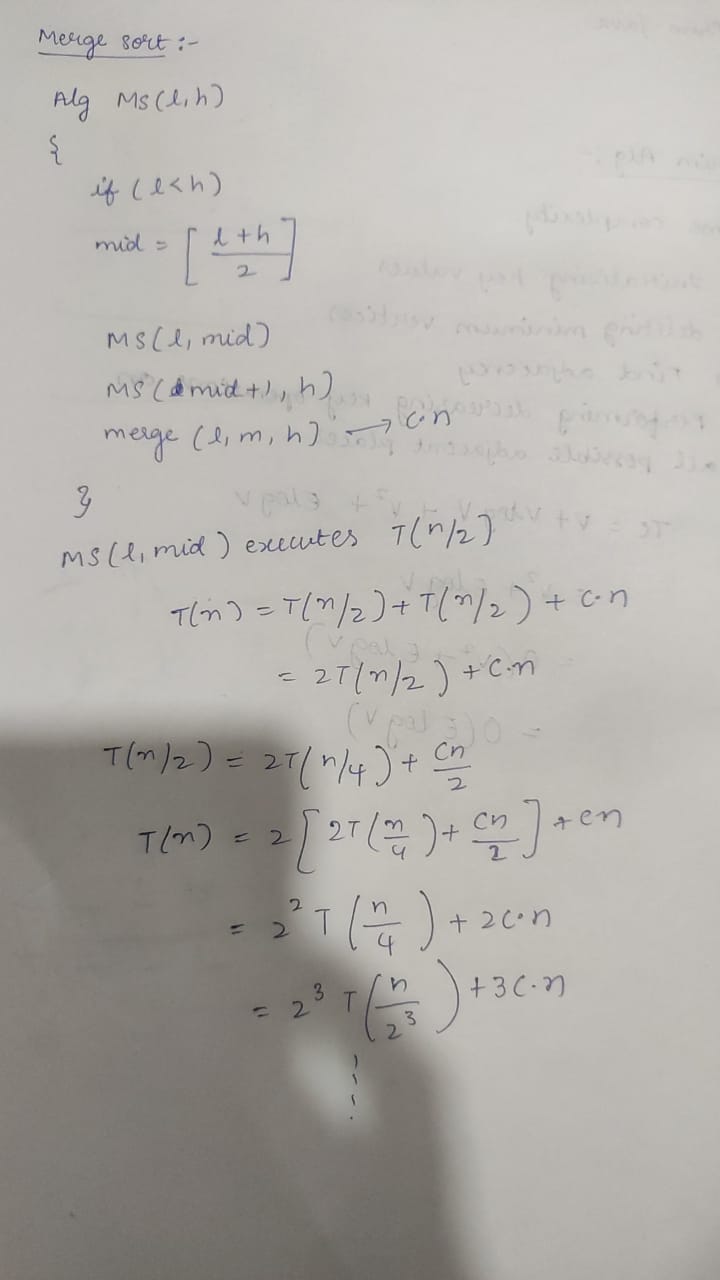 Merge sort :-
Alg MS(l,h)
{
if (l<h)
mid = [ (l+h)/2 ]
MS(l, mid)
MS(mid+1, h)
merge (l, m, h) → C·n
}
MS(l, mid) executes T(n/2)
T(n) = T(n/2) + T(n/2) + C·n
= 2T(n/2) + C·n
T(n/2) = 2T(n/4) + Cn/2
T(n) = 2[2T(n/4) + Cn/2] + cn
= 2² T(n/4) + 2C·n
= 2³ T(n/2³) + 3C·n